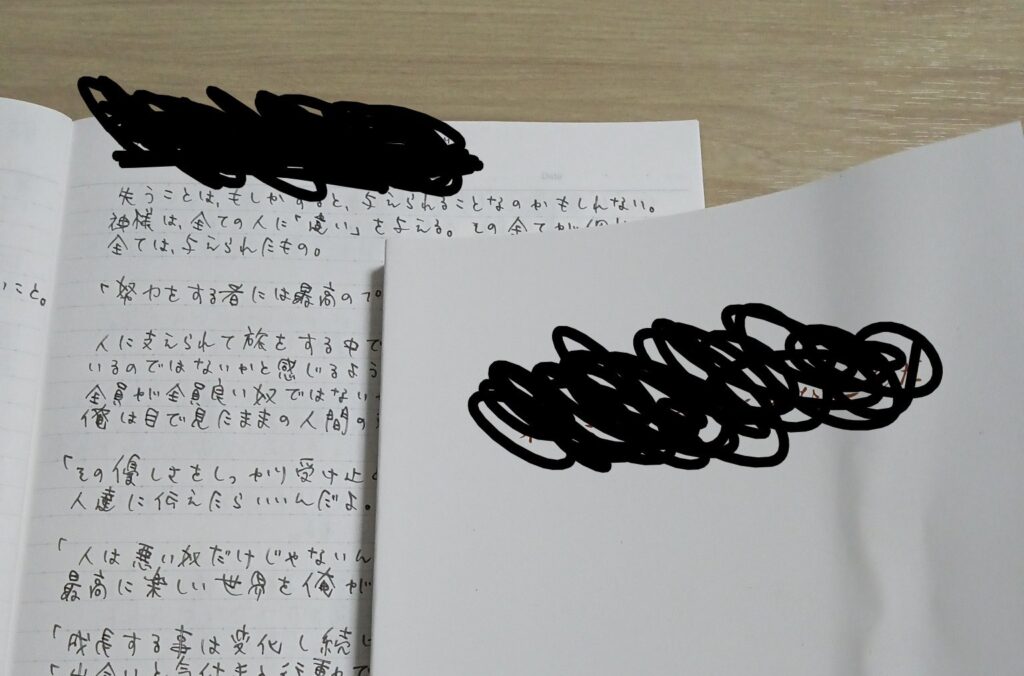 Date
失うことは、もしかすると、与えられることなのかもしれない。
神様は、全ての人に「違い」を与える。その全てが
全ては、与えられたもの。
いこと。
「努力をする者には最高の
人に支えられて旅をする中で
いるのではないかと感じるよう
全員が全員良い奴ではない
俺は目で見たままの人間の
「その優しさをしっかり受け止め
人達に伝えたらいいんだよ。
「人は悪い奴だけじゃないん
最高に楽しい世界を俺が
「成長する事は変化し続け
「出会いと気付きと行動で